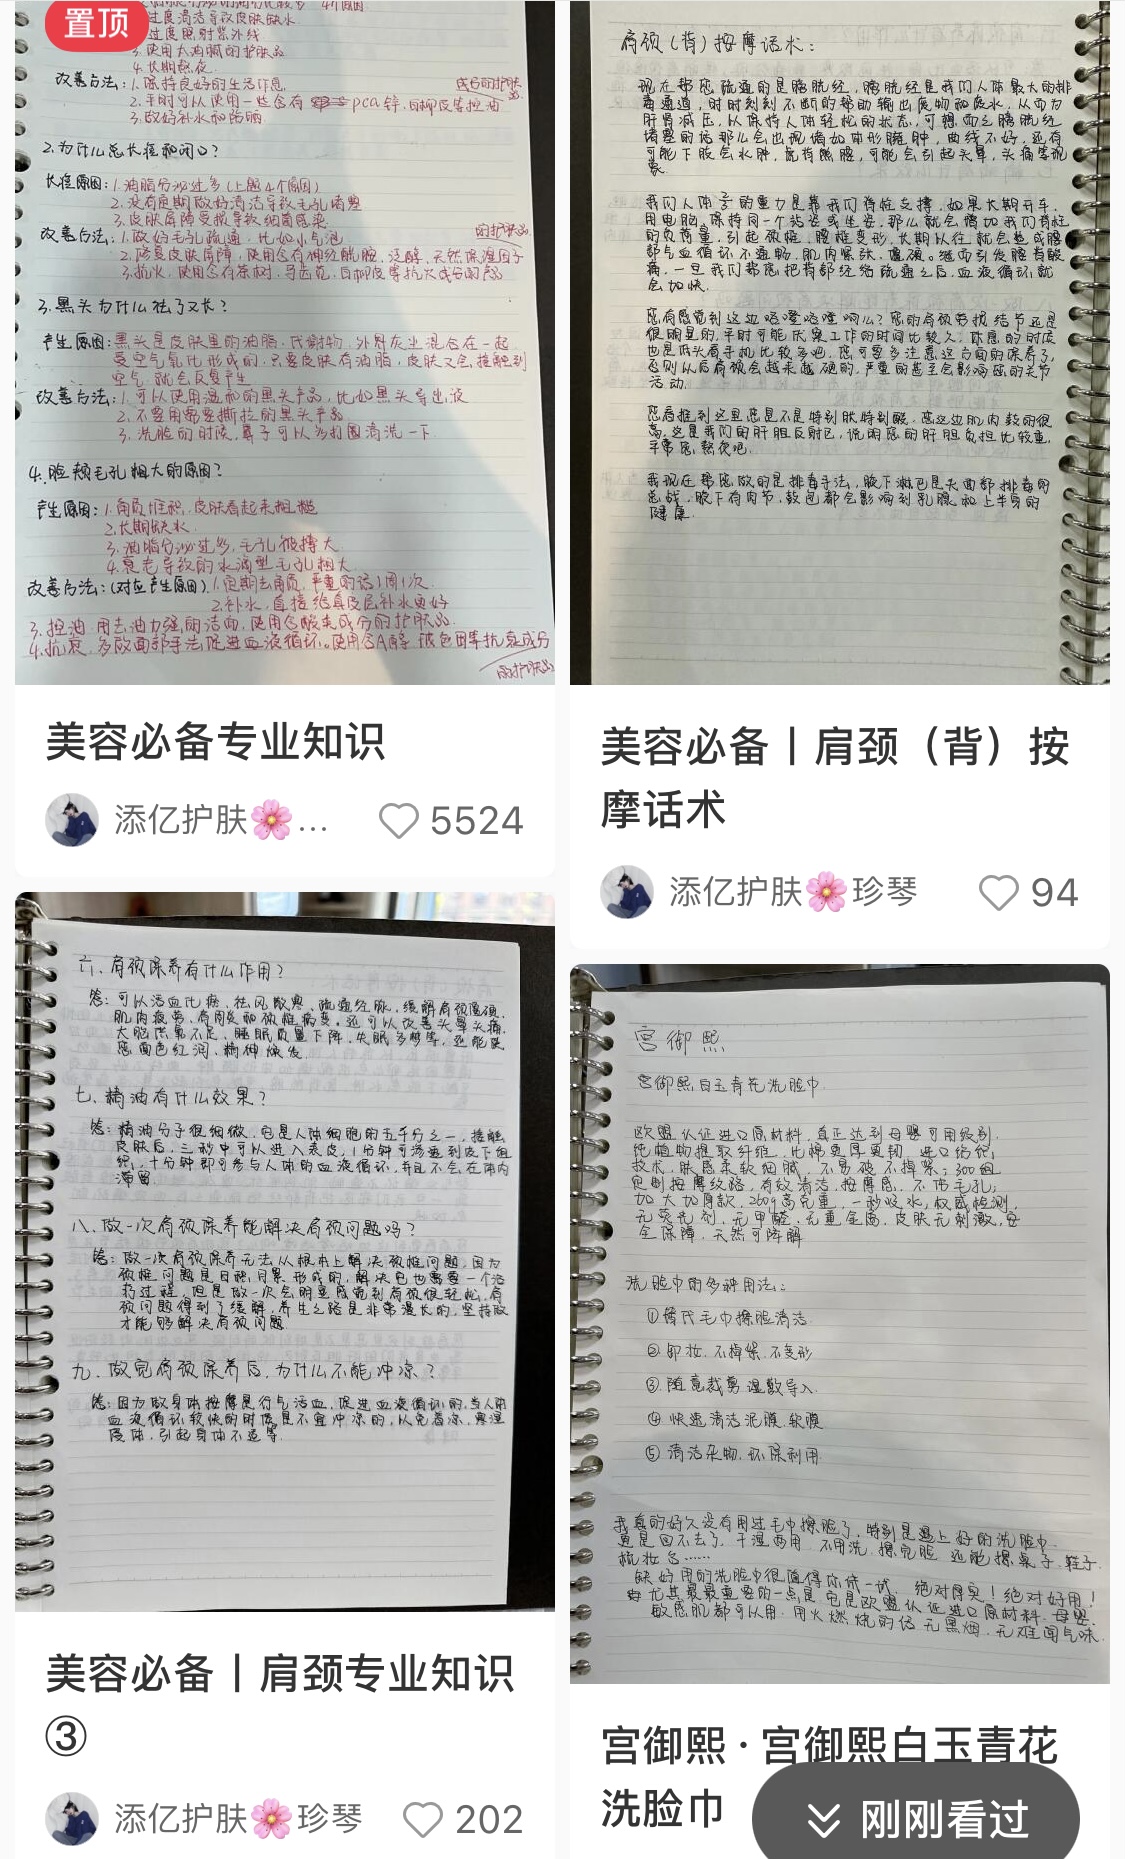 置顶
过度清洁导致皮肤缺水
过度照射紫外线
3.使用太油腻的护肤品
4.长期熬夜
改善方法:1.保持良好的生活作息
2.平时可以使用一些含有 pca锌.白柳皮等控油
成分的护肤品
3.做好补水和防晒
2.为什么总长痘和闭口?
长痘原因:1.油脂分泌过多(上题4个原因)
2.没有定期做好清洁导致毛孔堵塞
3.皮肤屏障受损导致细菌感染
改善方法:1.做好毛孔疏通,比如小气泡
2.修复皮肤屏障,使用含有神经酰胺,泛醇,天然保湿因子
的护肤品
3.抗炎,使用含有茶树,马齿苋,白柳皮等抗炎成分的产品
3.黑头为什么祛了又长?
产生原因:黑头是皮肤里的油脂、代谢物、外界灰尘混合在一起
受空气氧化形成的,只要皮肤有油脂,皮肤又会接触到
空气,就会反复产生
改善方法:1.可以使用温和的黑头产品,比如黑头导出液
2.不要用需要撕拉的黑头产品
3.洗脸的时候,鼻子可以多打圈清洗一下
4.脸颊毛孔粗大的原因?
产生原因:1.角质堆积,皮肤看起来粗糙
2.长期缺水
3.油脂分泌过多,毛孔被撑大
4.衰老导致的水滴型毛孔粗大
改善方法:(对应产生原因).1.定期去角质,严重的话1周1次
2.补水,直接给真皮层补水更好
3.控油,用去油力强的洁面,使用含酸类成分的护肤品
4.抗衰,多做面部手法促进血液循环。使用含A醇、玻色因等抗衰成分
的护肤品
美容必备专业知识
添亿护肤🌸...
5524
肩颈(背)按摩话术:
现在帮您疏通的是膀胱经,膀胱经是我们人体最大的排
毒通道,时时刻刻不断的帮助输出废物和废水,从而为
肝肾减压,以保持人体轻松的状态,可想而之膀胱经
堵塞的话那么会出现诸如体形臃肿,曲线不好,还有
可能下肢会水肿,就有熊腰,可能会引起头晕,头痛等现
象。
我们人体子的重力是靠我们脊柱支撑,如果长期开车、
用电脑、保持同一个站姿或坐姿,那么就会增加我们脊柱
的负荷量,引起颈椎,腰椎变形,长期以往,就会造成腰
部气血循环不通畅,肌肉紧张、僵硬。继而引发腰背酸
痛,一旦我们帮您把背部经络疏通之后,血液循环就
会加快.
您有感觉到这边咯噔咯噔响么?您的肩颈劳损结节还是
很明显的,平时可能伏案工作的时间比较久,休息的时候
也是低头看手机比较多吧,您可要多注意这方面的保养了,
否则以后肩颈会越来越硬的,严重的甚至会影响您的关节
活动.
您看推到这里您是不是特别胀特别酸,您这边肌肉鼓的很
高,这是我们的肝胆反射区,说明您的肝胆负担比较重,
平常您熬夜吧.
我现在帮您做的是排毒手法,腋下淋巴是头面部排毒的
总战,腋下有肉节,鼓包都会影响到乳腺和上半身的
健康.
美容必备丨肩颈（背）按
摩话术
添亿护肤🌸珍琴
94
六、肩颈保养有什么作用?
答:可以活血化瘀、祛风散寒、疏通经脉,缓解肩颈僵硬、
肌肉疲劳、肩周炎和颈椎病变。还可以改善头晕头痛、
大脑供氧不足、睡眠质量下降、失眠多梦等,还能使
您面色红润、精神焕发.
七、精油有什么效果?
答:精油分子很细微,它是人体细胞的五千分之一,接触
皮肤后,三秒中可以进入表皮,1分钟可渗透到皮下组
织,十分钟即可参与人体的血液循环,并且不会在体内
滞留.
八、做一次肩颈保养能解决肩颈问题吗?
答:做一次肩颈保养无法从根本上解决颈椎问题,因为
颈椎问题是日积月累形成的,解决它也需要一个治
疗过程,但是做一次会明显感觉到肩颈很轻松,肩
颈问题得到了缓解,养生之路是非常漫长的,坚持做
才能够解决肩颈问题
九、做完肩颈保养后,为什么不能冲凉?
答:因为做身体按摩是行气活血,促进血液循环的,当人体
血液循环较快的时候是不宜冲凉的,以免着凉,寒湿
侵体,引起身体不适等.
美容必备丨肩颈专业知识
③
添亿护肤🌸珍琴
202
宫御熙
宫御熙,白玉青花洗脸巾
欧盟认证进口原材料,真正达到母婴可用级别.
纯植物提取纤维,比棉更厚更韧,进口纺织
技术,肤感柔软细腻,不易破不掉絮;300目
贝则按摩纹路,有效清洁,按摩感,不伤毛孔;
加大加厚款,260g高克重,一秒吸水,权威检测,
无荧光剂、无甲醛、无重金属,皮肤无刺激,安
全保障,天然可降解
洗脸巾的多种用法:
①替代毛巾擦脸清洁.
②卸妆.不掉絮.不变形
③随意裁剪.湿敷导入.
④快速清洁泥膜.软膜
⑤清洁杂物.环保利用
我真的好久没有用过毛巾擦脸了,特别是遇上好的洗脸巾
更是回不去了,干湿两用,不用洗.擦完脸还能擦桌子.鞋子.
梳妆台……
缺好用的洗脸巾很值得你试一试.绝对厚实!绝对好用!
尤其最最重要的一点是它是欧盟认证进口原材料.母婴.
敏感肌都可以用.用火燃烧的话无黑烟.无难闻气味.
宫御熙·宫御熙白玉青花
洗脸巾
刚刚看过